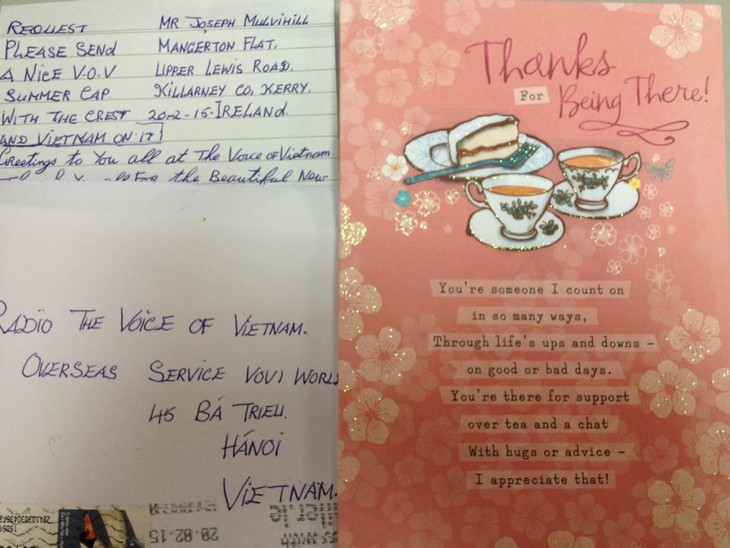 REQUEST MR JOSEPH MULVIHILL
PLEASE SEND MANGERTON FLAT.
A NICE V.O.V UPPER LEWIS ROAD.
SUMMER CAP KILLARNEY CO, KERRY.
WITH THE CREST 20-2-15-IRELAND.
AND VIETNAM ON IT
Greetings to You all at The Voice of Vietnam
For the Beautiful New
RADIO THE VOICE OF VIETNAM.
OVERSEAS SERVICE VOV1 WORL
45 BÁ TRIEU.
HÁNOI
VIETNAM.
28.02.15
Thanks
For Being There!
You're someone I count on
in so many ways,
Through life's ups and downs –
on good or bad days.
You're there for support
over tea and a chat
With hugs or advice –
I appreciate that!